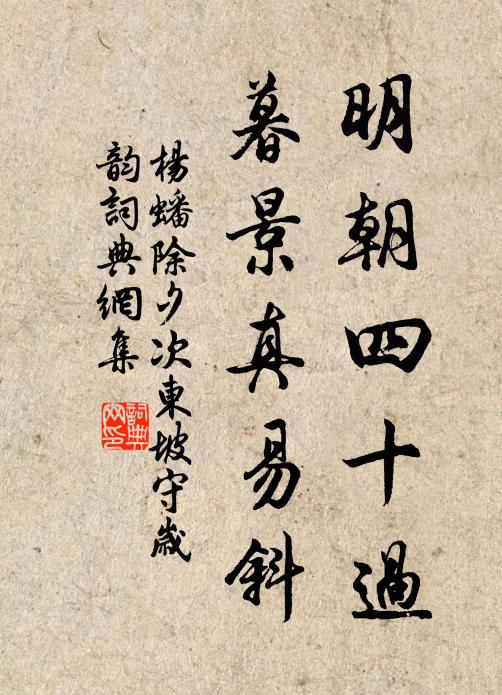 明朝四十過
暮景真易斜
楊蟠除夕次東坡守歲
韵詞典網集
詞典網印